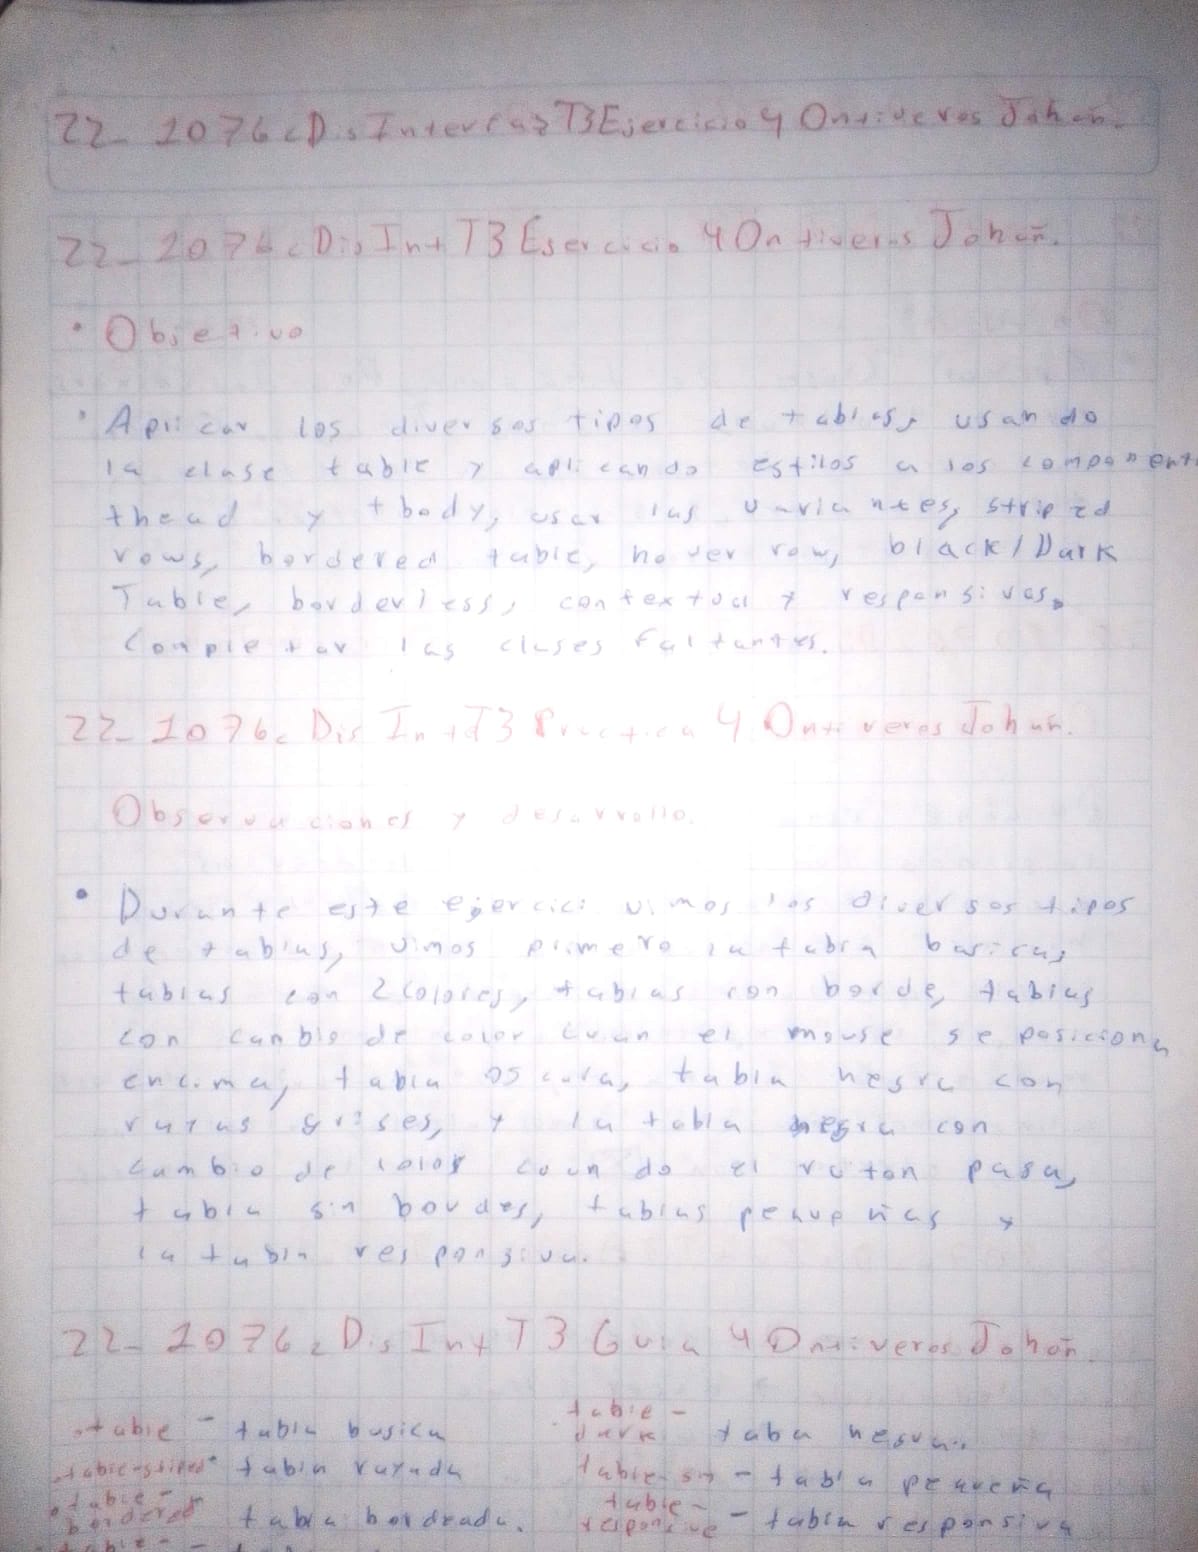 22-1076cDisInterfazT3Ejercicio4OntiverosJohan.
22-1076cDisIntT3Ejercicio4OntiverosJohan.
• Objetivo
• Aplicar los diversos tipos de tablas, usando
la clase table y aplicando estilos a los component
thead y tbody, usar las variantes, striped
rows, bordered table, hover row, black/Dark
Table, borderless, contextual y responsivas.
Completar las clases faltantes.
22-1076cDisIntT3Practica4OntiverosJohan.
Observaciones y desarrollo.
• Durante este ejercici vimos los diversos tipos
de tablas, vimos primero la tabla basicas
tablas con 2 colores, tablas con borde, tablas
con canbio de color cuan el mouse se posiciona
encima, tabla oscura, tabla negra con
rayas grises, y la tabla negra con
cambio de color cuando el raton pasa,
tabla sin bordes, tablas pequeñas y
la tabla responsiva.
22-1076cDisIntT3Guia4OntiverosJohan.
.table - tabla basica
.table-dark taba negra.
.table-striped tabla rayada
table-sm - tabla pequeña
• table-bordered tabla bordeada.
table-responsive - tabla responsiva